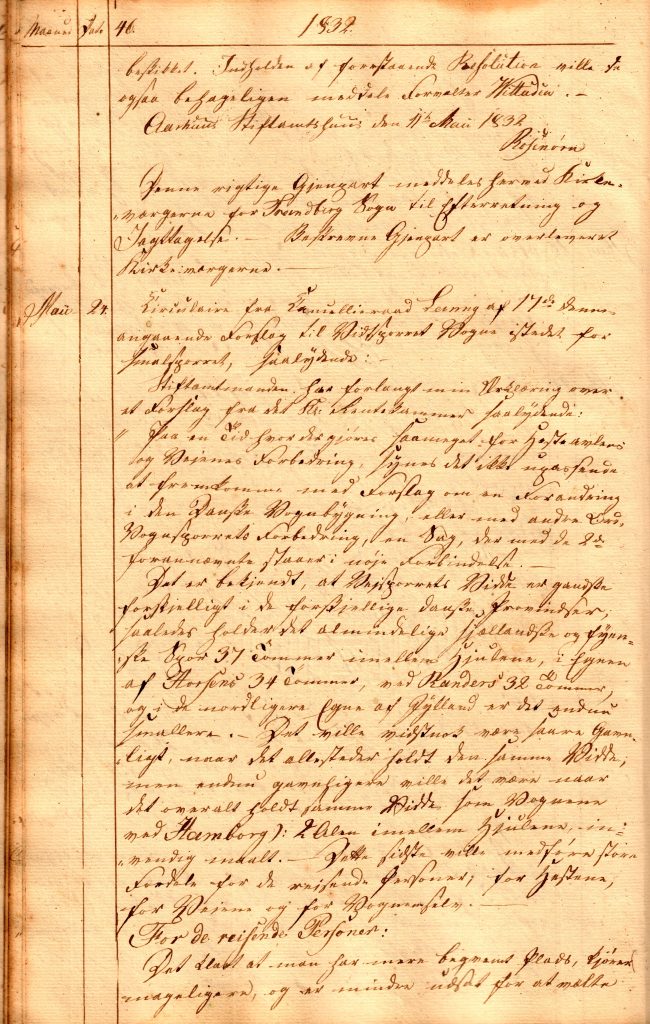 Maaned Dato 46. 1832.
beskikket. Indholden af forestaaende Resolution ville De
ogsaa behageligen meddele Forvalter
Aarhuus Stiftamtshuus den 11te Maii 1832
Rosenørn
Denne rigtige Gjenpart meddeles herved Kirke-
værgerne for Sogn til Efterretning og
Iagttagelse. — Bekrevne Gjenpart er overleveret
Kirkeværgerne. —
Maii 24. Circulaire fra Cancelliraad af 17de denne
angaaende Forslag til Vidtsporret Vogne istedet for
smalsporret, saalydende: —
Stiftamtmanden har forlangt min Erklæring over
et Forslag fra det Kl: Rentekammer saalydende:
„ Paa en Tid hvor der gjøres saameget for Hesteavlens
og Veienes Forbedring, synes det ikke upassende
at fremkomme med Forslag om en Forandring
i den Danske Vognbygning, eller med andre Ord,
Vognsporrets Forbedring, en Sag, der med de 2de
forannævnte staaer i nøje Forbindelse. —
Det er bekjendt, at Vejsporrets Vidde er gandske
forskjelligt i de forskjellige danske Provindser,
saaledes holder det almindelige Sjællandske og Fyen-
ske Spor 37 Tommer imellem Hjulene, i Egnen
af Horsens 34 Tommer, ved Randers 32 Tommer,
og i de nordligere Egne af Jylland er det endnu
smallere. — Det ville vidstnok være saare Gavn-
ligt, naar det allesteder holdt den samme Vidde,
men endnu gavnligere ville det være naar
det overalt holdt samme Vidde som Vognene
ved Hamborg ): 2 Alen imellem Hjulene, in-
vendig maalt. — Dette sidste ville medføre store
Fordele for de rejsende Personer, for Hestene,
for Veiene og for Vognenselv. —
For de reisende Personer:
Det klart at man har mere beqvemt Plads, kjører
mageligere, og er mindre udsat for at vælte